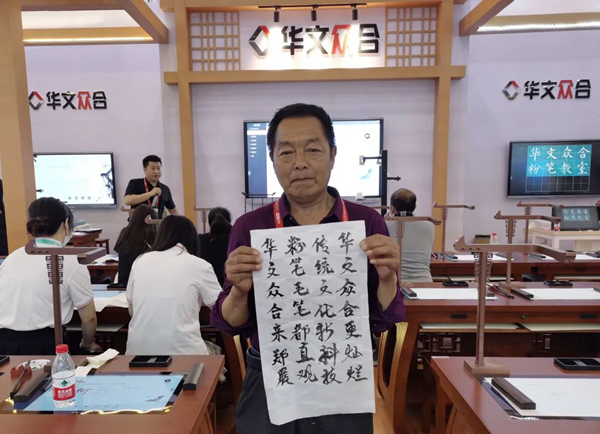 华文众合
华文众合
华文众合
华文众合
粉笔教室
华文众合更灿烂
传统文化新科教
粉笔毛笔都直观
华文众合来郑展